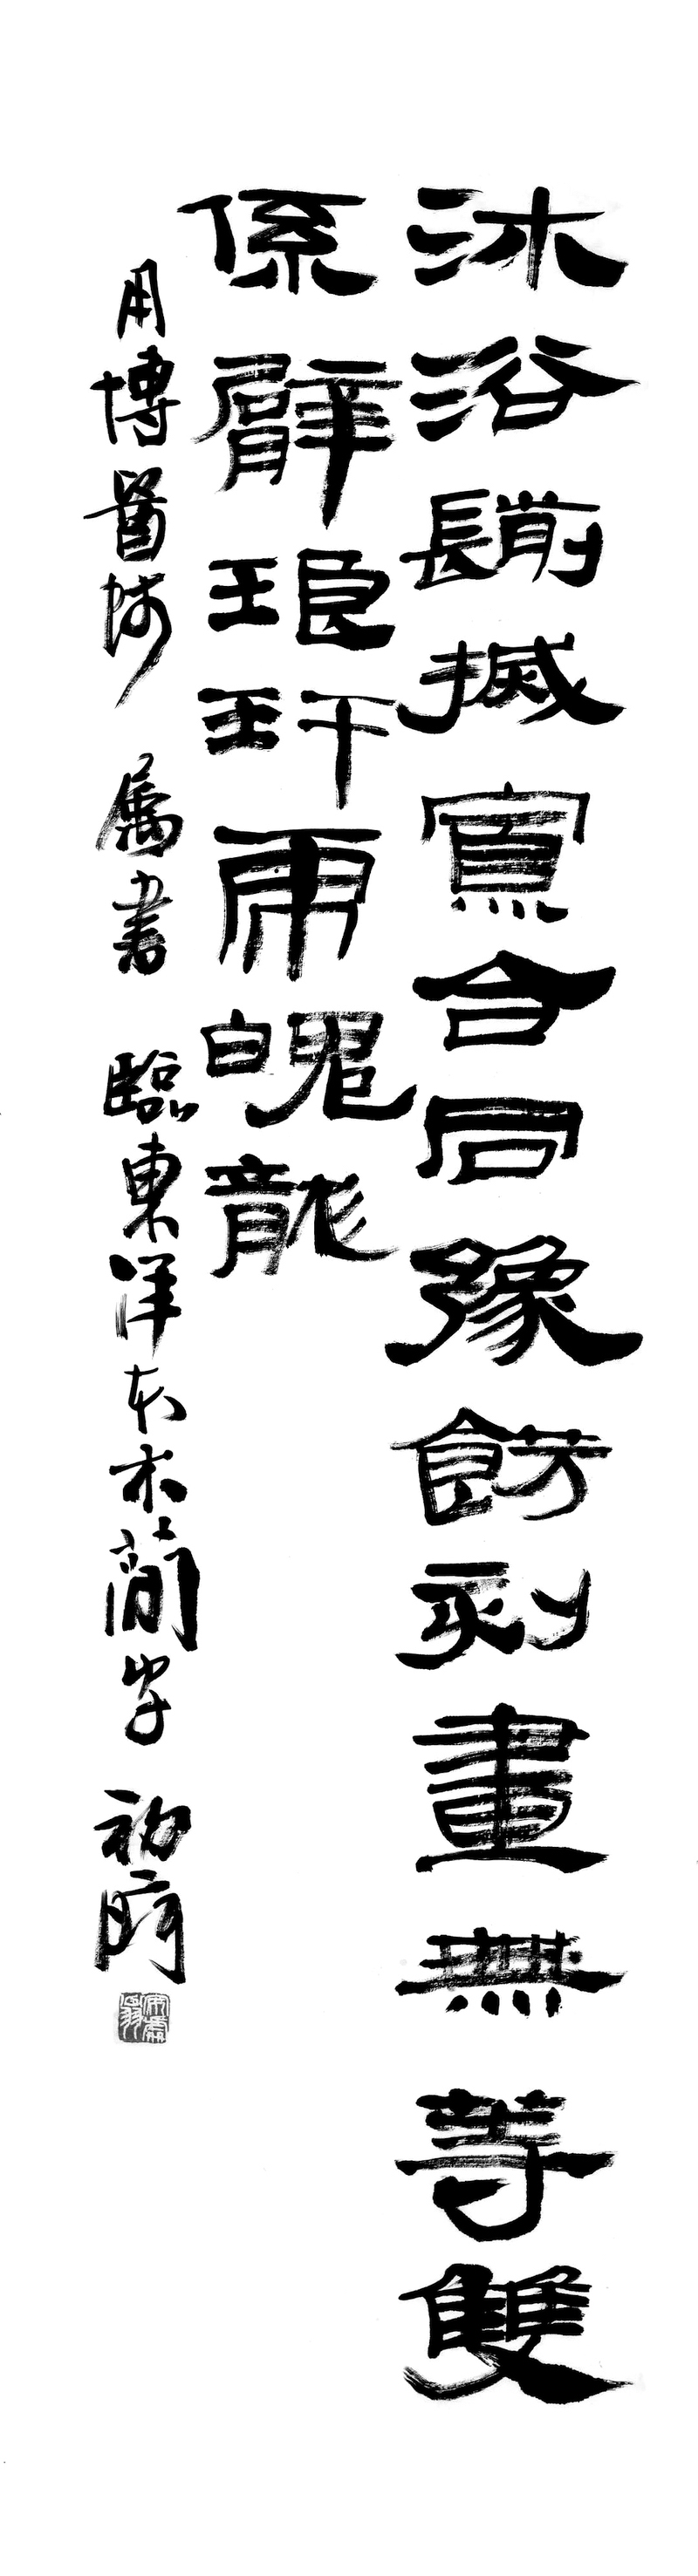 沐浴鬋搣寡合同豫飭刻畫無等雙
係臂琅玕虎魄龍
用博醫師 属書 臨東洋本木簡字 初